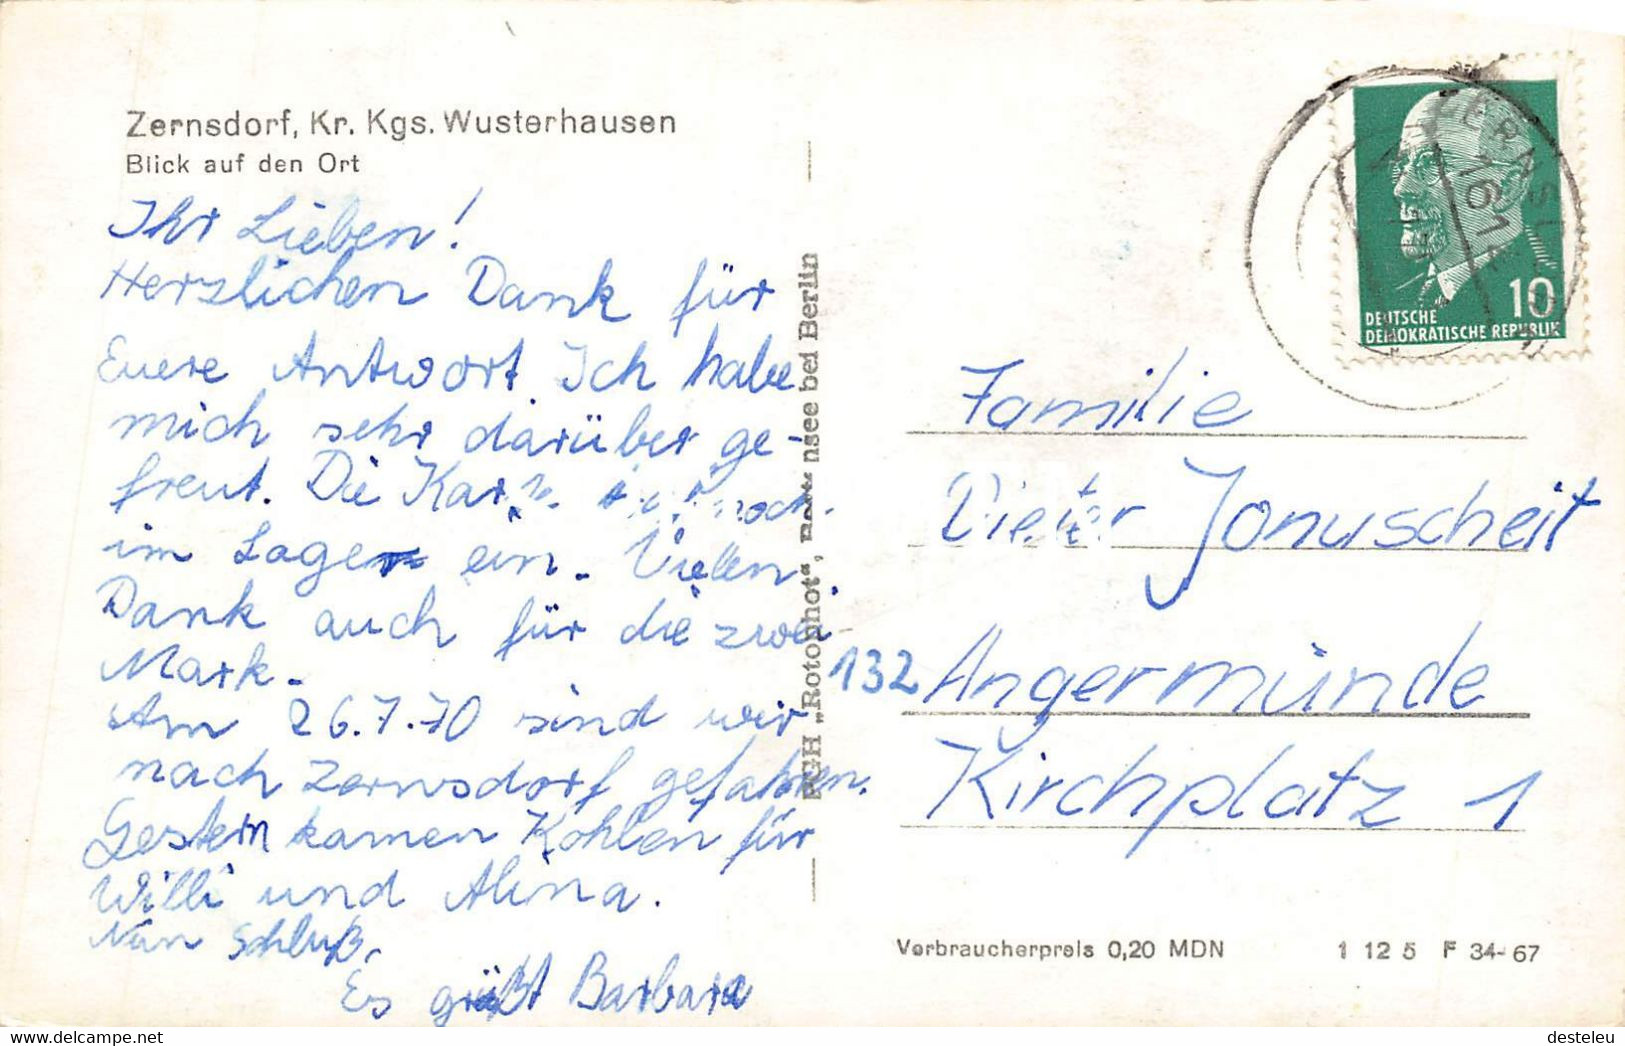 Zernsdorf, Kr. Kgs. Wusterhausen
Blick auf den Ort
Ihr Lieben!
Herzlichen Dank für
Euere Antwort. Ich habe
mich sehr darüber ge-
freut. Die Karte noch
im Lager ein. Vielen
Dank auch für die zwei
Mark.
Am 26.7.70 sind wir
nach Zernsdorf gefahren.
Gestern kamen Kohlen für
Willi und Alina.
Nun Schluß.
Es grüßt Barbara
PGH „Rotophot“, nsee bei Berlin
DEUTSCHE
DEMOKRATISCHE REPUBLIK
10
1614
Familie
Dieter Jonuscheit
132 Angermünde
Kirchplatz 1
Verbraucherpreis 0,20 MDN 1 12 5 F 34-67
delcampe.net
desteleu